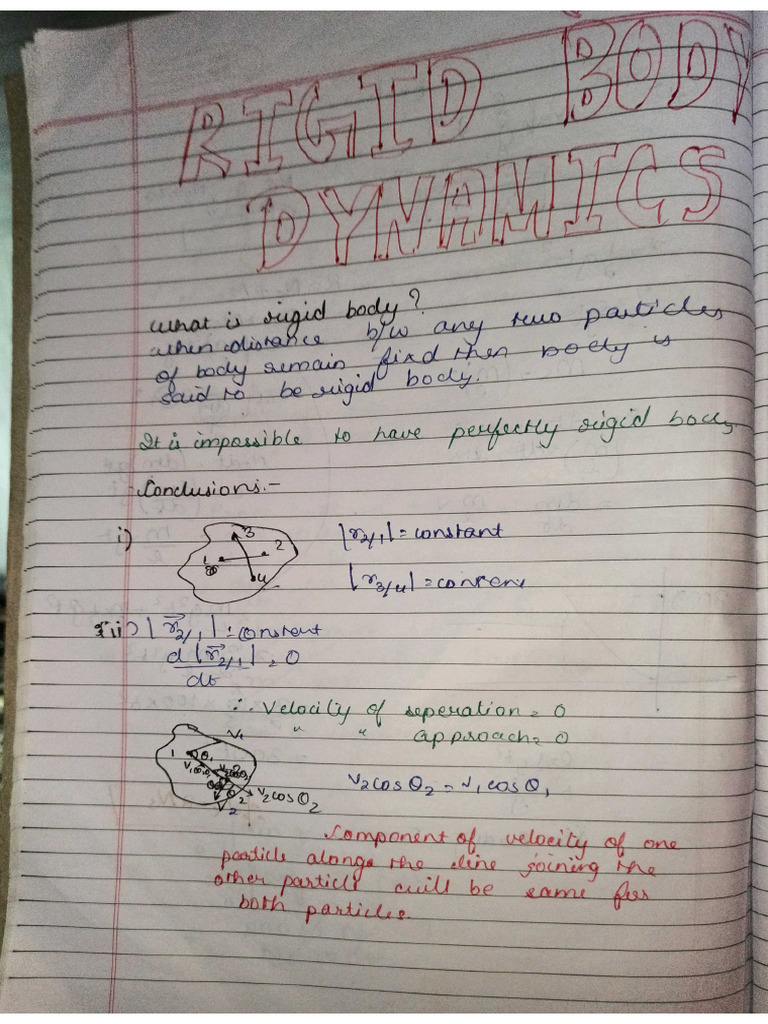 RIGID BODY
DYNAMICS
What is rigid body?
when distance b/w any two particles
of body remain fixd then body is
said to be rigid body.
It is impossible to have perfectly rigid body
Conclusions:-
i)
3
2
1
4
|r2/1| = constant
|r3/4| =
ii) |r⃗2/1| = constant
d|r⃗2/1| = 0
dt
∴ Velocity of seperation = 0
" " approach = 0
V1
1 θ1
θ2 V2cosθ2
V2
V2cosθ2 = V1cosθ1
Component of velocity of one
particle alonga the line joining the
other particle will be same for
both particles.